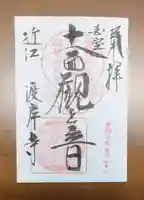 奉拝
国宝
十一面観世音
近江
渡岸寺